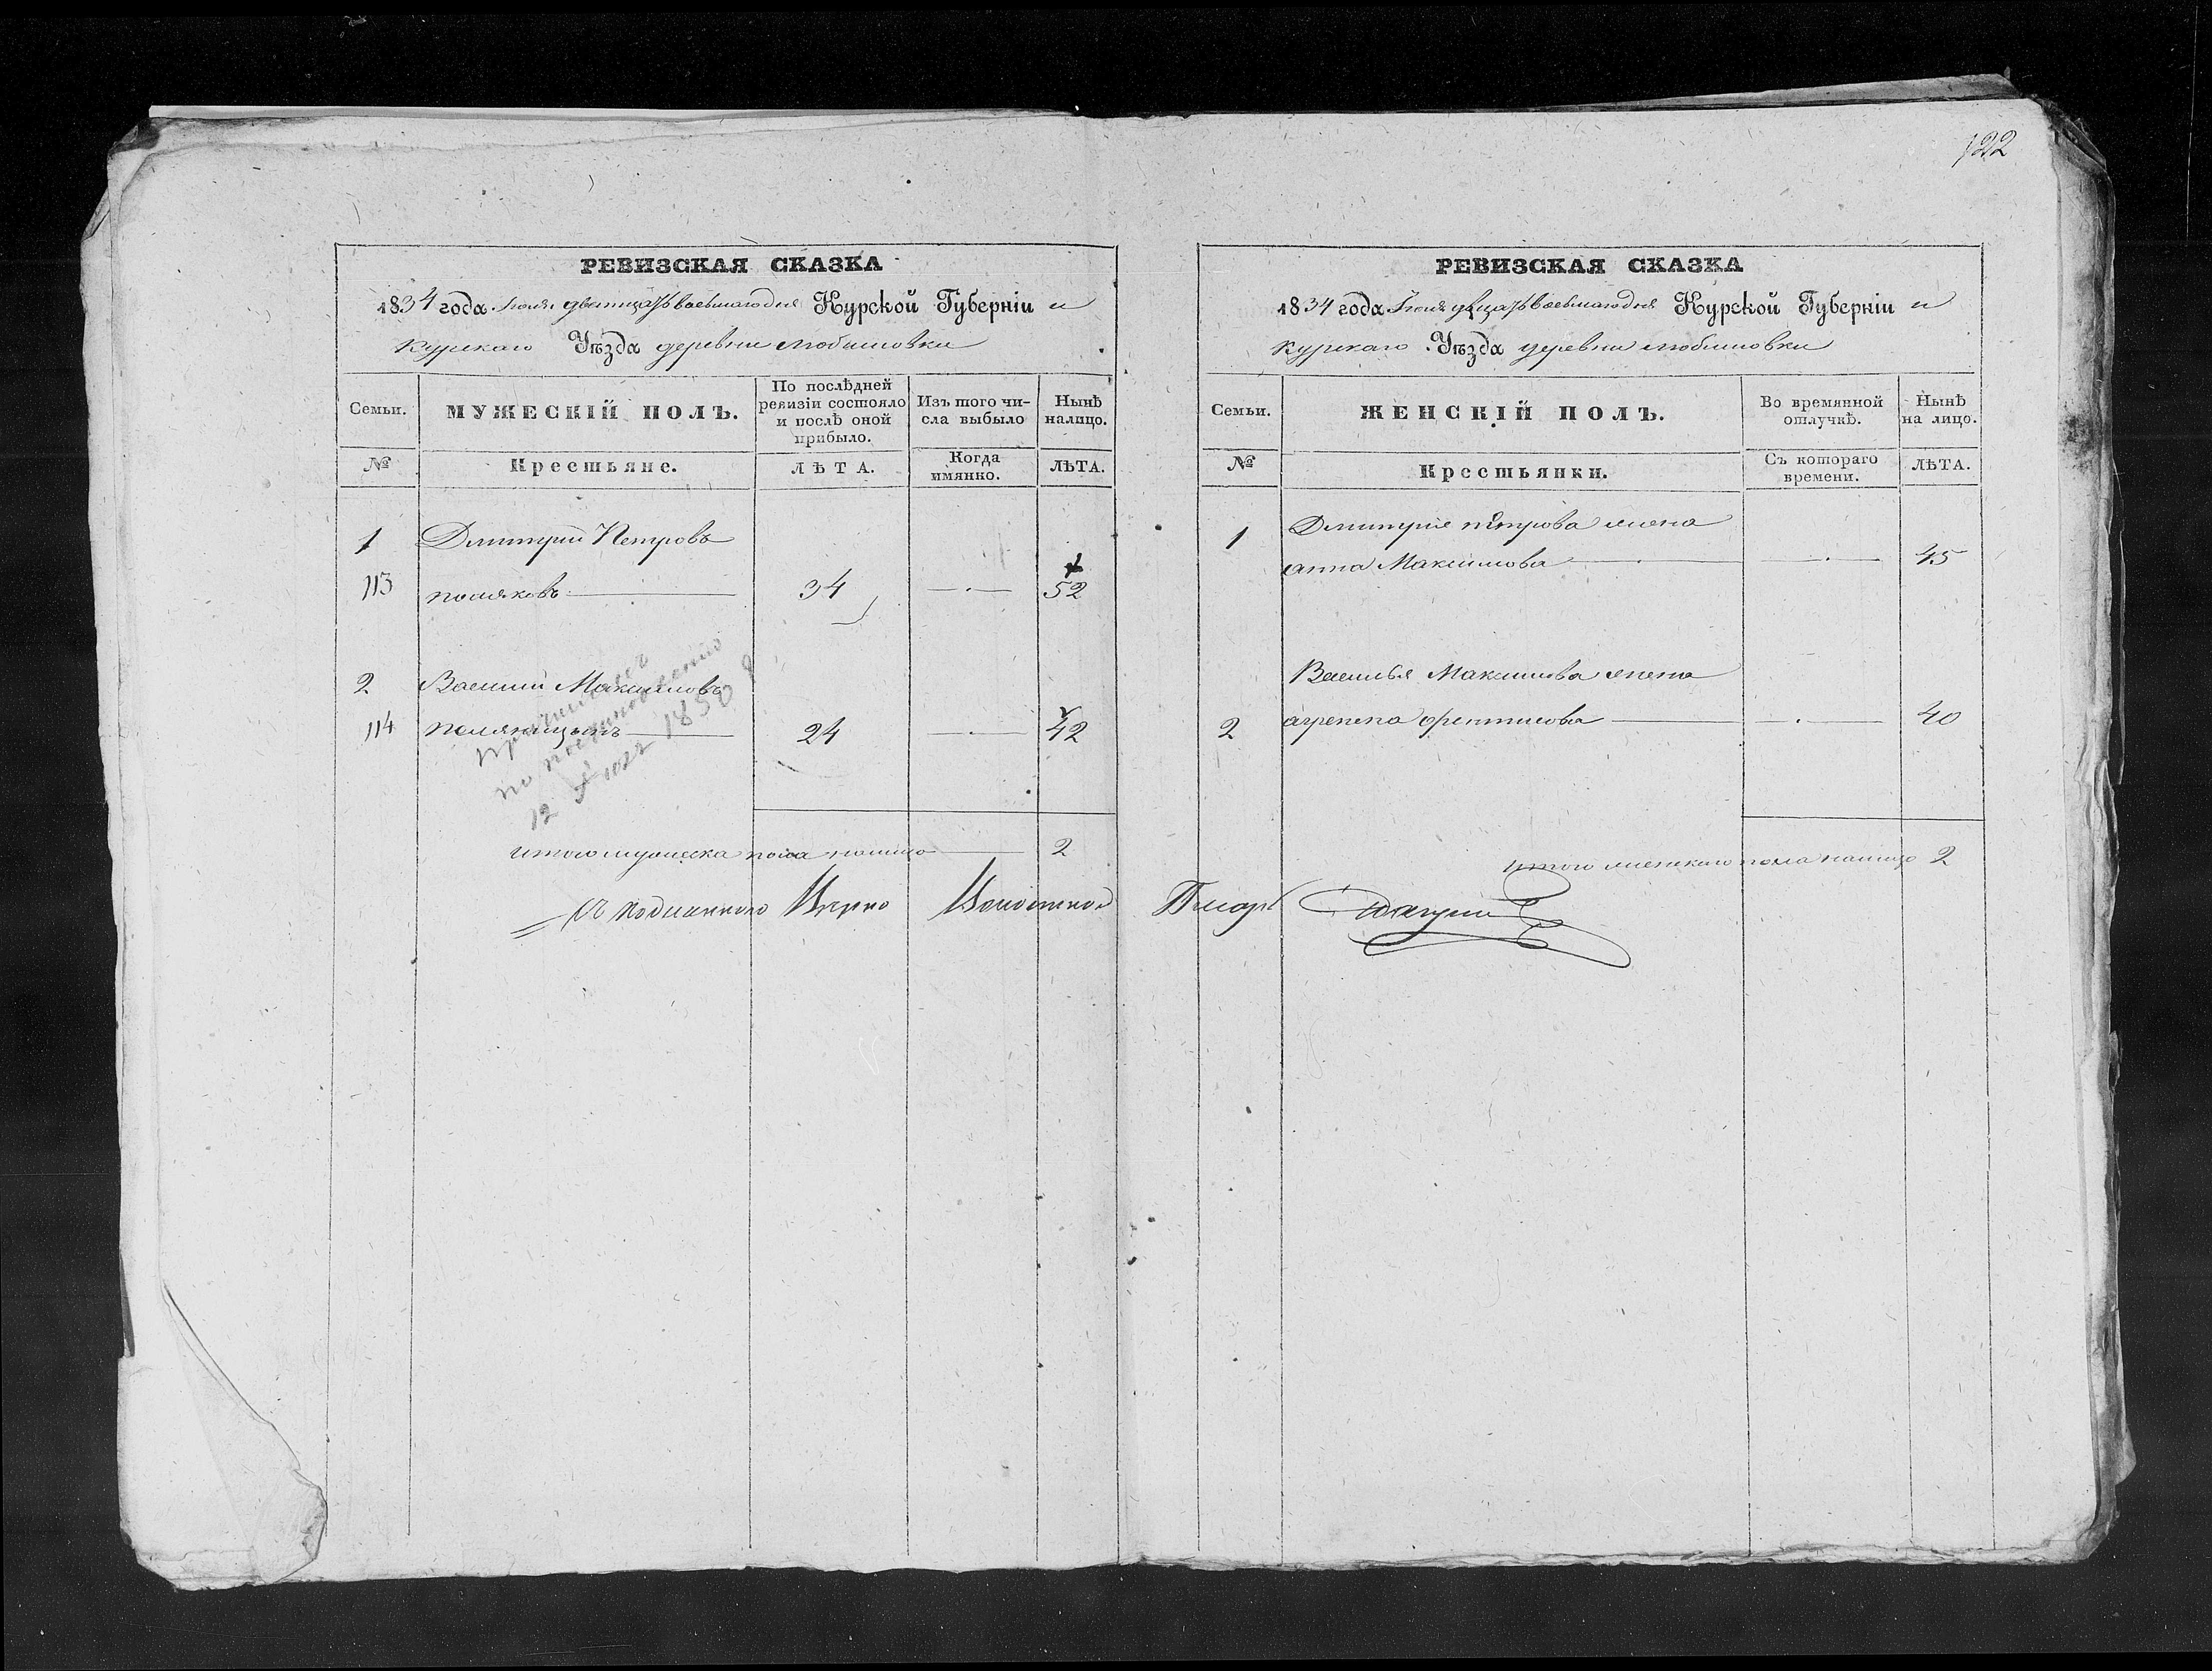 122
РЕВИЗСКАЯ СКАЗКА
1834 года Июня двацать восьмаго дня Курской Губерніи и
Курскаго Уѣзда деревни Любимовки
Семьи. МУЖЕСКІЙ ПОЛЪ. По послѣдней ревизіи состояло и послѣ оной прибыло. Изъ того числа выбыло Нынѣ налицо.
№ Крестьяне. ЛѢТА. Когда имянно. ЛѢТА.
1 Дмитрий Петровъ
113 поляковъ 34 52
2 Василий Максимовъ
114 24 42
12 1850
итого мужеска пола налицо 2
Съ подлинною Вѣрно Волостной
РЕВИЗСКАЯ СКАЗКА
1834 года Июня двацать восьмаго дня Курской Губерніи и
Курскаго Уѣзда деревни Любимовки
Семьи. ЖЕНСКІЙ ПОЛЪ. Во времянной отлучкѣ. Нынѣ на лицо.
№ Крестьянки. Съ котораго времени. ЛѢТА.
1 Дмитрия петрова жена
анна Максимова 45
Василья Максимова жена
2 агрепена 40
итого женскаго пола налицо 2
Писарь